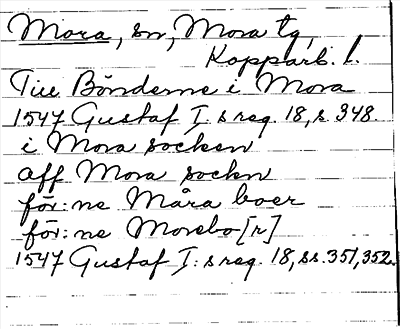 Mora, sn, Mora tg,
Kopparb. l.
Till Bönderne i Mora
1547 Gustaf I:s reg. 18, s. 348.
i Mora socken
aff Mora sockn
för:ne Måra boer
för:ne Morebo[r]
1547 Gustaf I:s reg. 18, ss. 351, 352.